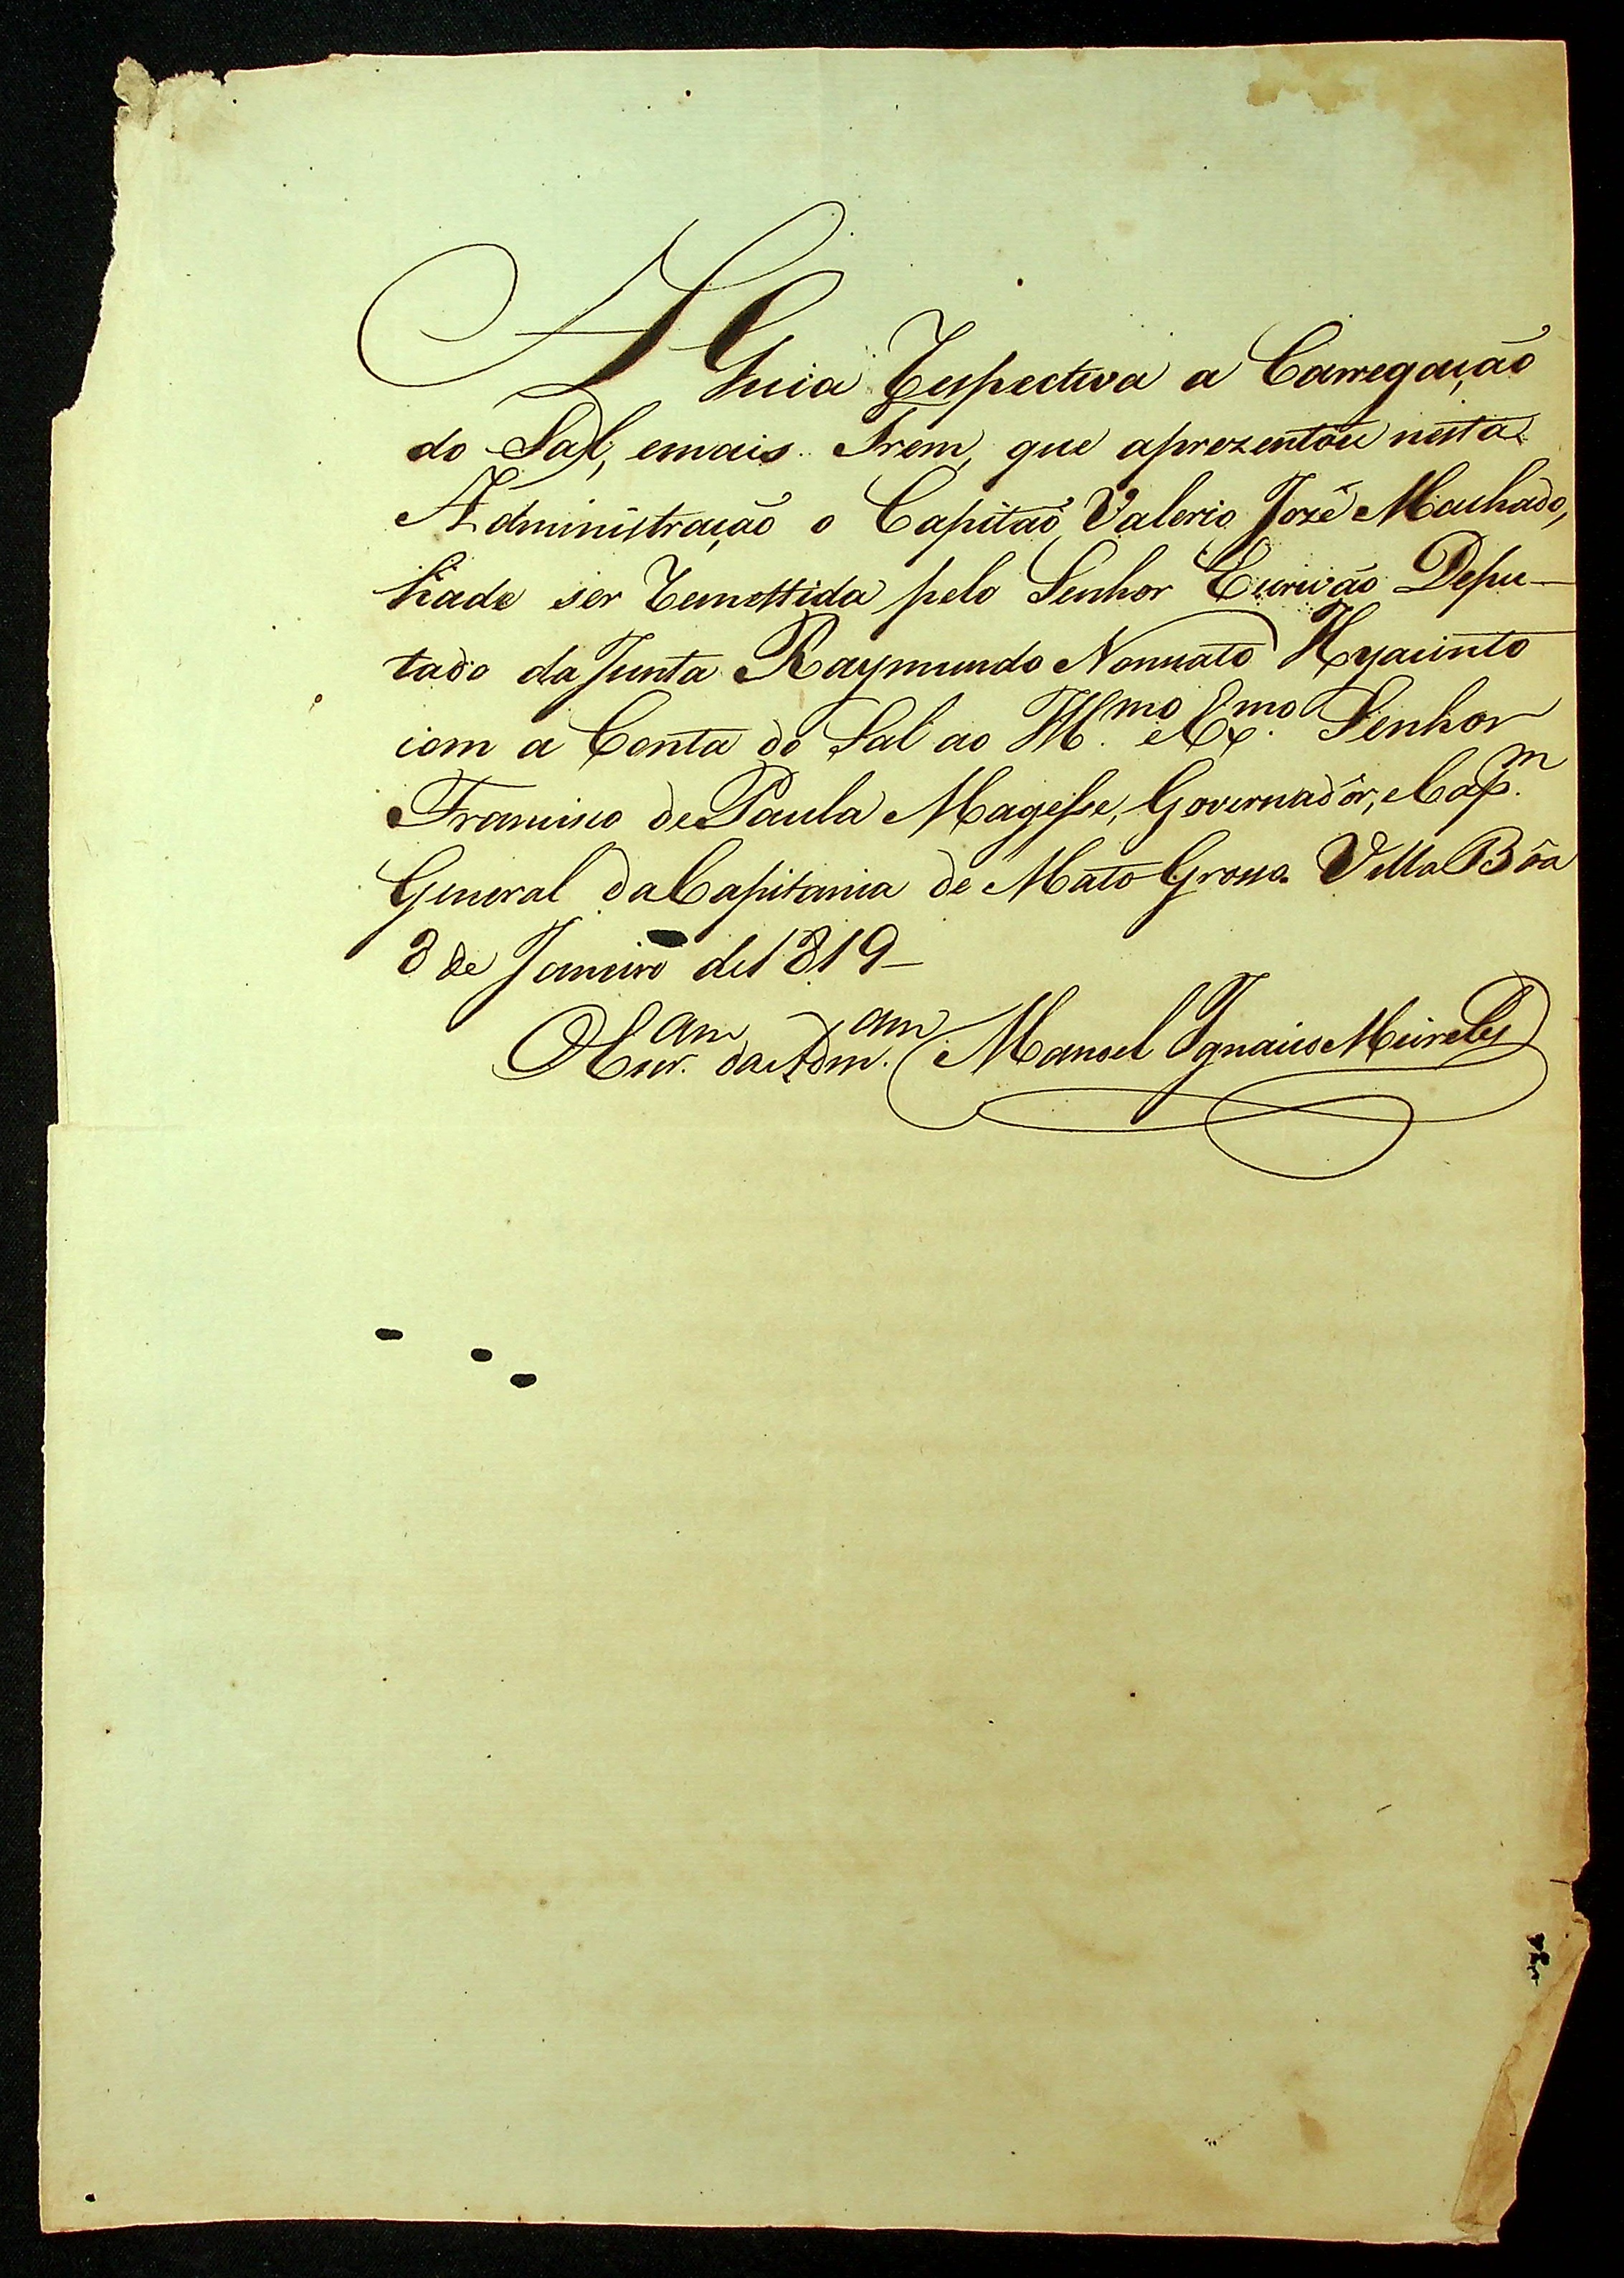 A Guia Respectiva a Carregação
do Sal, emais Trem, que aprezentou nesta
Administração o Capitaõ Valerio Jozé Machado,
hade ser Remettida pelo Senhor Escrivão Depu-
tado da Junta Raymundo Nonnato Hyacinto
com a Conta do Sal ao Ill.mo e Ex.mo Senhor
Francisco de Paula Magesse, Governadôr, e Cap.m
General da Capitania de Mato Grosso. Villa Bôa
8 de Janeiro de 1819_
O Escr.am da Adm.am Manoel Ignacio Meireles